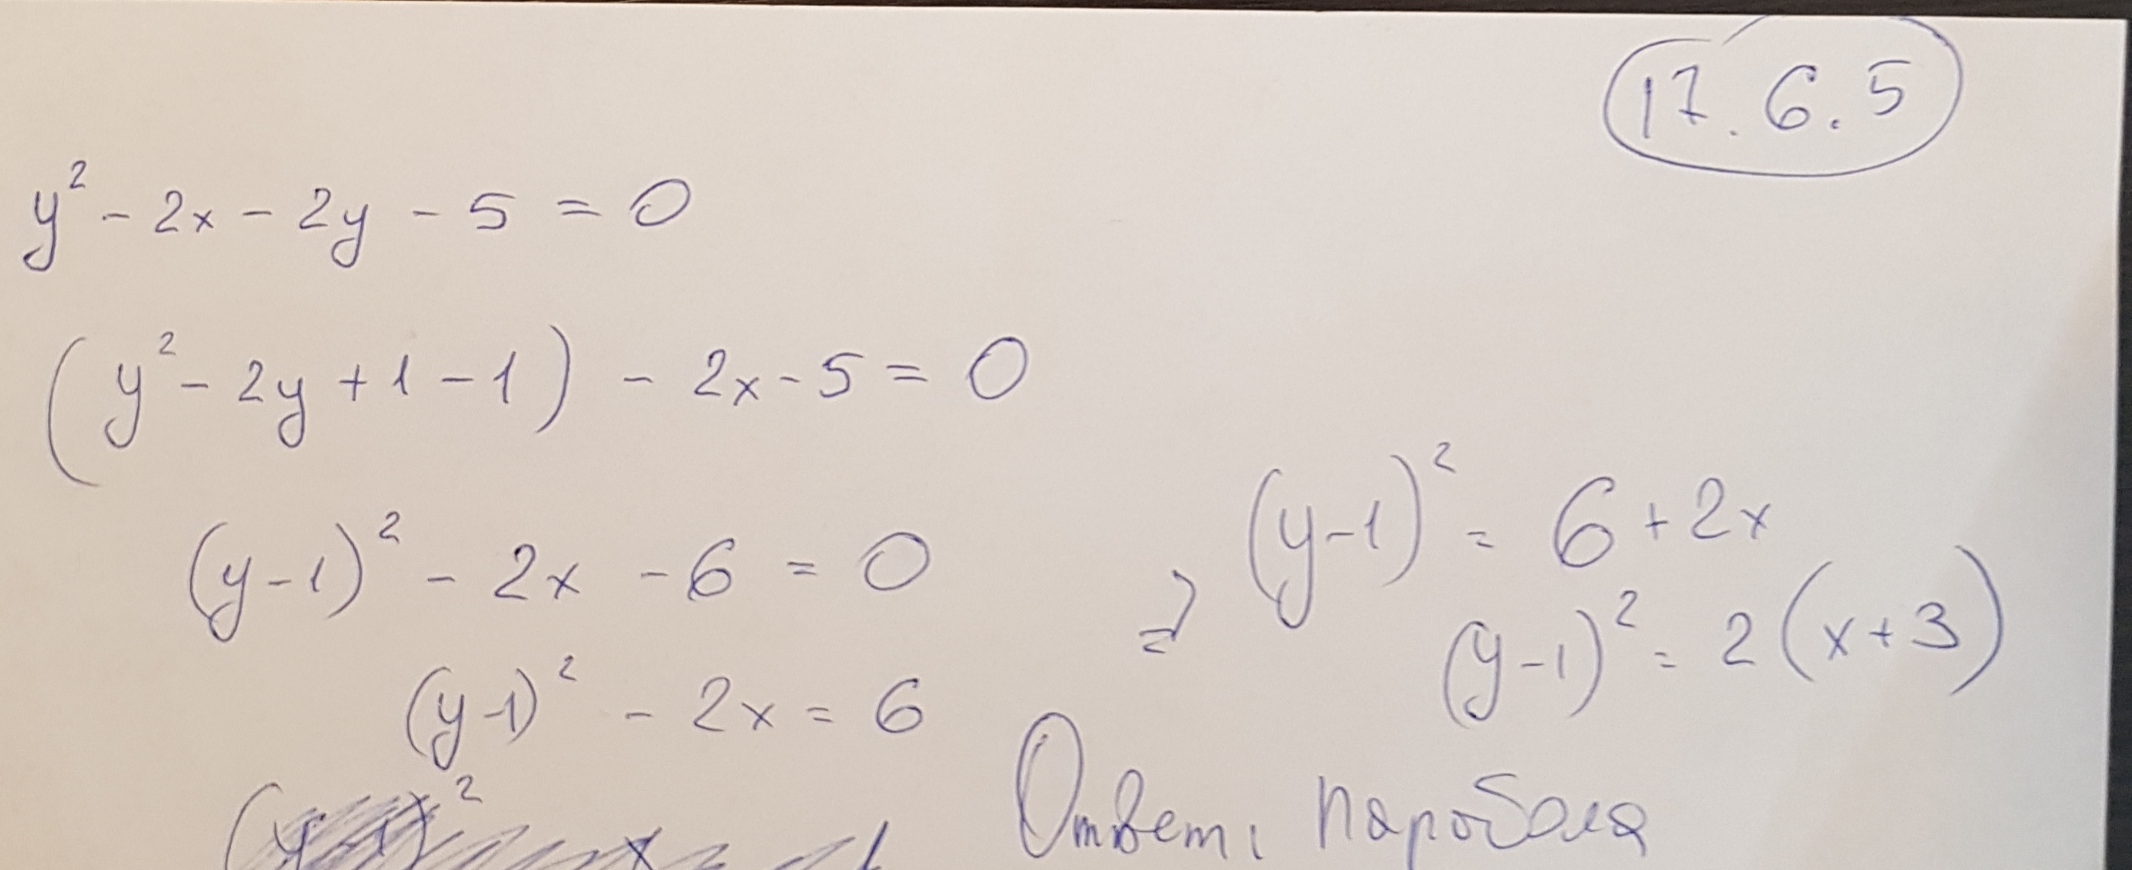 17.6.5
y² - 2x - 2y - 5 = 0
(y² - 2y + 1 - 1) - 2x - 5 = 0
(y-1)² - 2x - 6 = 0
(y-1)² - 2x = 6
⇒ (y-1)² = 6 + 2x
(y-1)² = 2(x+3)
Ответ: парабола